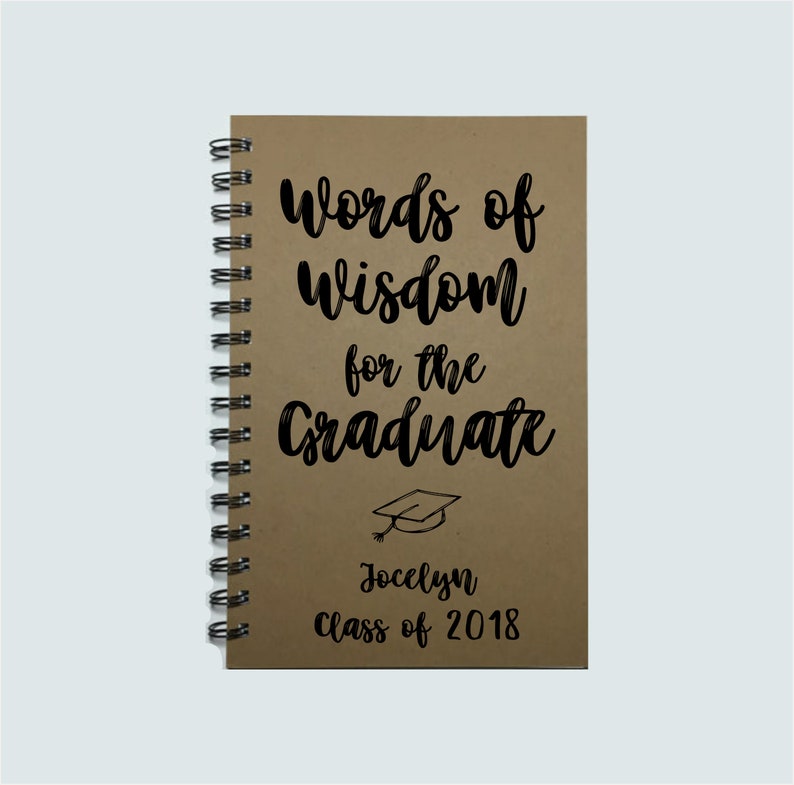 Words of
Wisdom
for the
Graduate
Jocelyn
Class of 2018